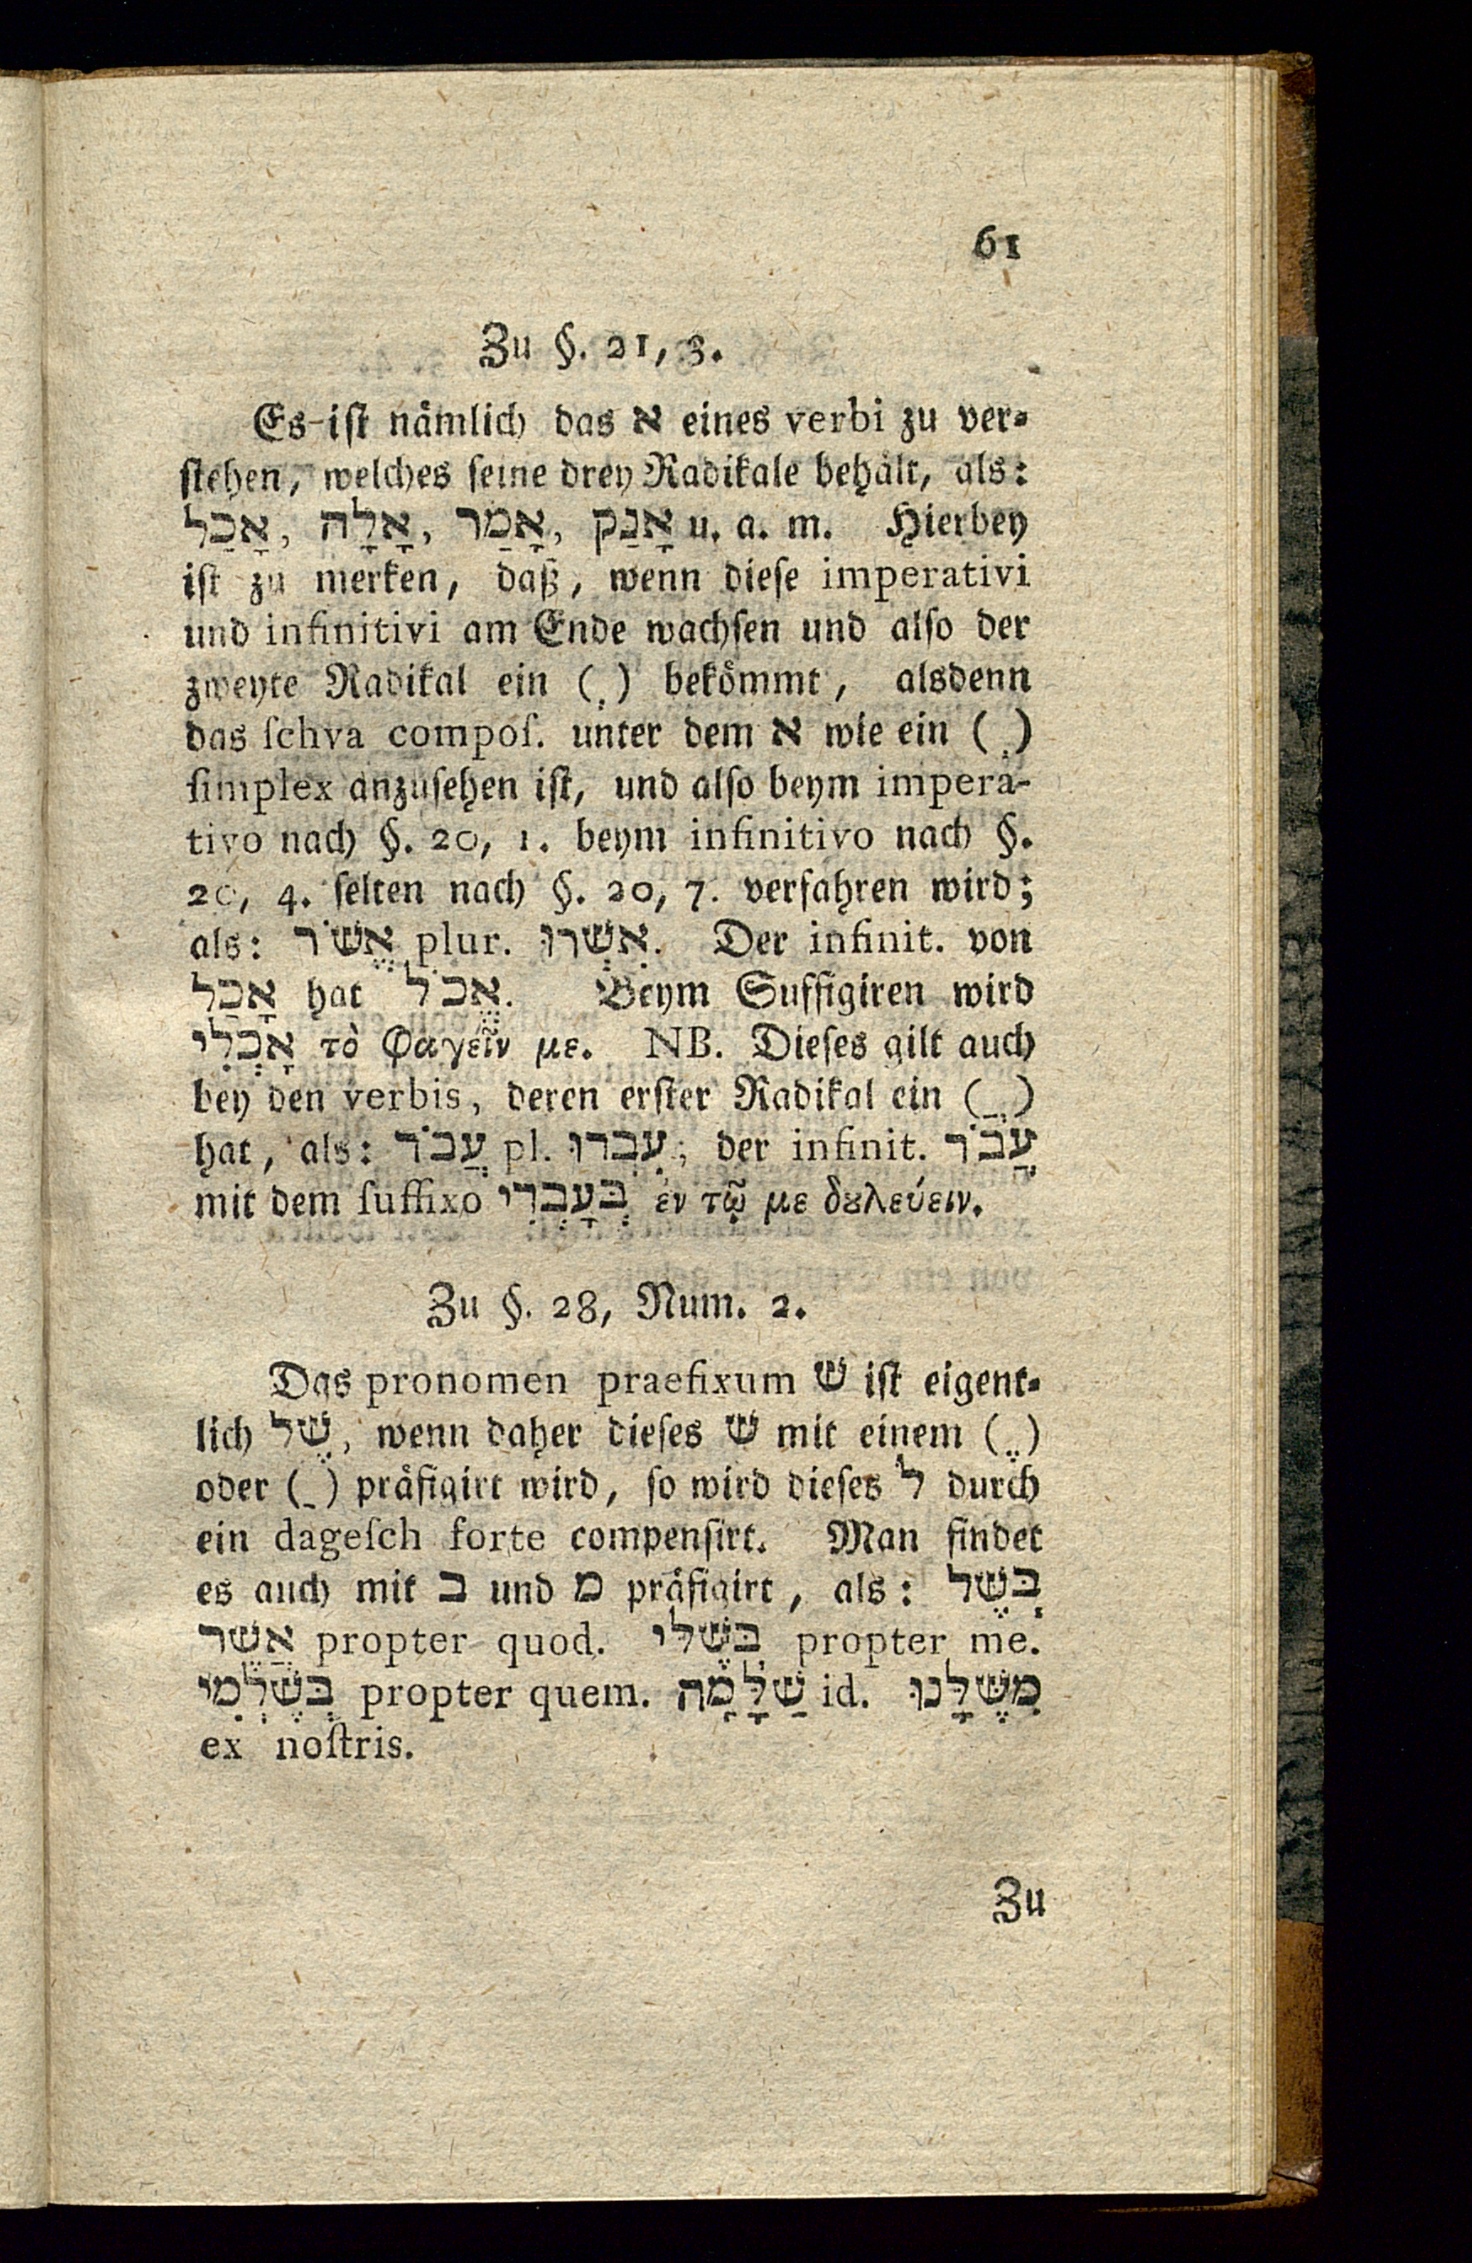 61
Zu §. 21, 3.
Es ist nämlich das א eines verbi zu ver-
stehen, welches seine drey Radikale behält, als:
אָכַל, אָלָה, אָמַר, אָנַק u. a. m. Hierbey
ist zu merken, daß, wenn diese imperativi
und infinitivi am Ende wachsen und also der
zweyte Radikal ein (ְ) bekömmt, alsdenn
das ſchva compoſ. unter dem א wie ein (ְ)
ſimplex anzusehen ist, und also beym impera-
tivo nach §. 20, 1. beym infinitivo nach §.
20, 4. selten nach §. 20, 7. verfahren wird;
als: אֱשֹׁר plur. אִשְׁרוּ. Der infinit. von
אָכַל hat אֱכֹל. Beym Suffigiren wird
אָכְלִי τὸ φαγεῖν με. NB. Dieses gilt auch
bey den verbis, deren erster Radikal ein (ֲ)
hat, als: עֲבֹד pl. עִבְדוּ; der infinit. עֲבֹד
mit dem ſuffixo בְּעָבְדִי ἐν τῷ με δȣλεύειν.
Zu §. 28, Num. 2.
Das pronomen praefixum שׁ ist eigent-
lich שֶׁל, wenn daher dieses שׁ mit einem (ֶ)
oder (ַ) präfigirt wird, so wird dieses ל durch
ein dageſch forte compensirt. Man findet
es auch mit ב und מ präfigirt, als: בְּשֶׁל
אֲשֶׁר propter quod. בְּשֶׁלִּי propter me.
בְּשֶׁלְּמִי propter quem. שַׁלָּמָה id. מִשֶּׁלָּנוּ
ex noſtris.
Zu